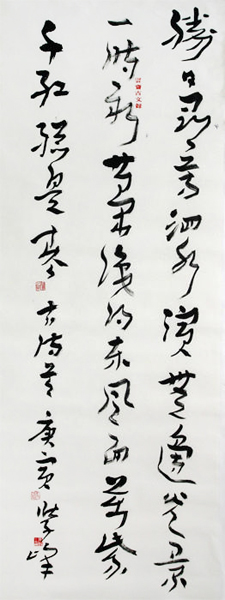 勝日尋芳泗水濱無邊光景
一時新等閒識得東風面萬紫
千紅總是春古詩庚寅峰